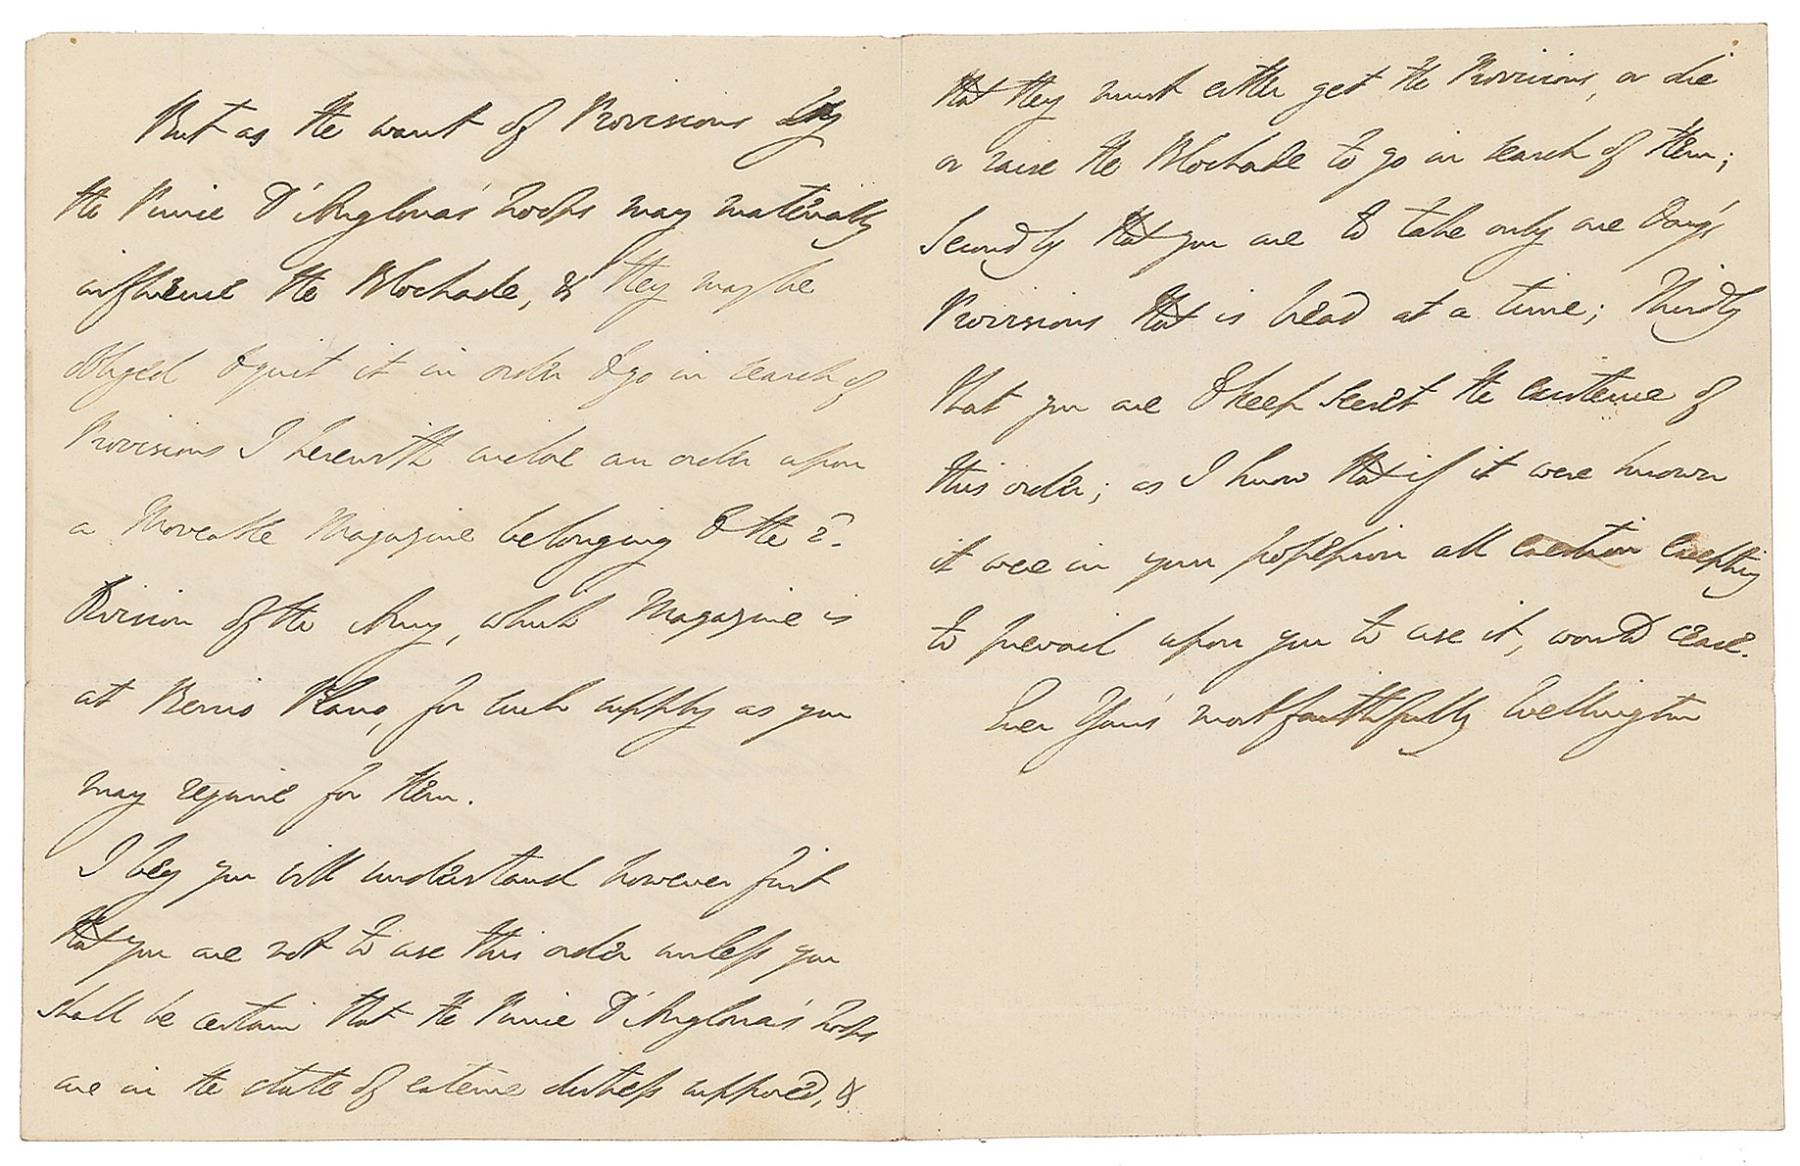 But as the want of Provisions by
the Prince D'Anglona's troops may materially
influence the Blockade, & they may be
obliged to quit it in order to go in search of
Provisions I herewith enclose an order upon
a Moveable Magazine belonging to the 2.
Division of the Army, which Magazine is
at for such supply as you
may require for them.
I beg you will understand however first
that you are not to use this order unless you
shall be certain that the Prince D'Anglona's troops
are in the state of extreme distress supposed, &
that they must either get the Provisions, or die
or raise the Blockade to go in search of them;
Secondly that you are to take only one day's
Provisions that is bread at a time; Thirdly
that you are to keep secret the existence of
this order; as I know that if it were known
it were in your possession all exertion excepting
to prevail upon you to use it, would cease.
Ever Yours most faithfully Wellington